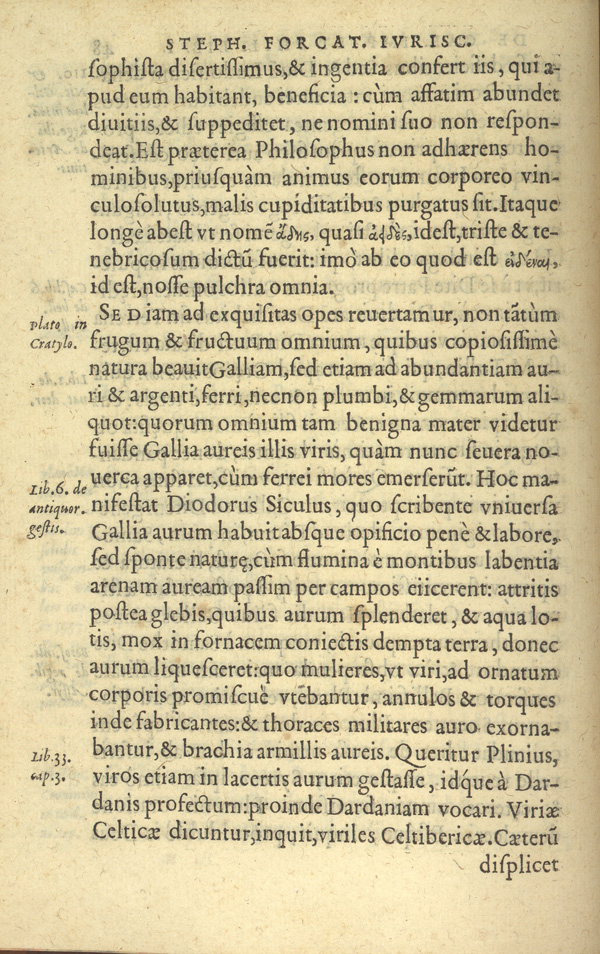 STEPH. FORCAT. IVRISC.
sophista disertissimus,& ingentia confert iis, qui a-
pud eum habitant, beneficia : cùm affatim abundet
diuitiis,& suppeditet, ne nomini suo non respon-
deat.Est præterea Philosophus non adhærens ho-
minibus,priusquàm animus eorum corporeo vin-
culo solutus,malis cupiditatibus purgatus sit.Itaque
longè abest vt nomẽ ᾅδης, quasi ἀειδὲς, idest,triste & te-
nebricosum dictũ fuerit: imò ab eo quod est εἰδέναι,
id est,nosse pulchra omnia.
SED iam ad exquisitas opes reuertamur, non tãtùm
plato in
Cratylo.
frugum & fructuum omnium, quibus copiosissimè
natura beauit Galliam,sed etiam ad abundantiam au-
ri & argenti,ferri,necnon plumbi,& gemmarum ali-
quot:quorum omnium tam benigna mater videtur
fuisse Gallia aureis illis viris, quàm nunc seuera no-
uerca apparet,cùm ferrei mores emerserũt. Hoc ma-
Lib.6. de
antiquor.
gestis.
nifestat Diodorus Siculus, quo scribente vniuersa
Gallia aurum habuit absque opificio penè & labore,
sed sponte naturę,cùm flumina è montibus labentia
arenam auream passim per campos eiicerent: attritis
postea glebis,quibus aurum splenderet, & aqua lo-
tis, mox in fornacem coniectis dempta terra, donec
aurum liquesceret:quo mulieres,vt viri,ad ornatum
corporis promiscuè vtẽbantur, annulos & torques
inde fabricantes:& thoraces militares auro exorna-
bantur,& brachia armillis aureis. Queritur Plinius,
Lib.33.
cap.3.
viros etiam in lacertis aurum gestasse, idq́ue à Dar-
danis profectum:proinde Dardaniam vocari. Viriæ
Celticæ dicuntur,inquit,viriles Celtibericæ.Cæterũ
displicet